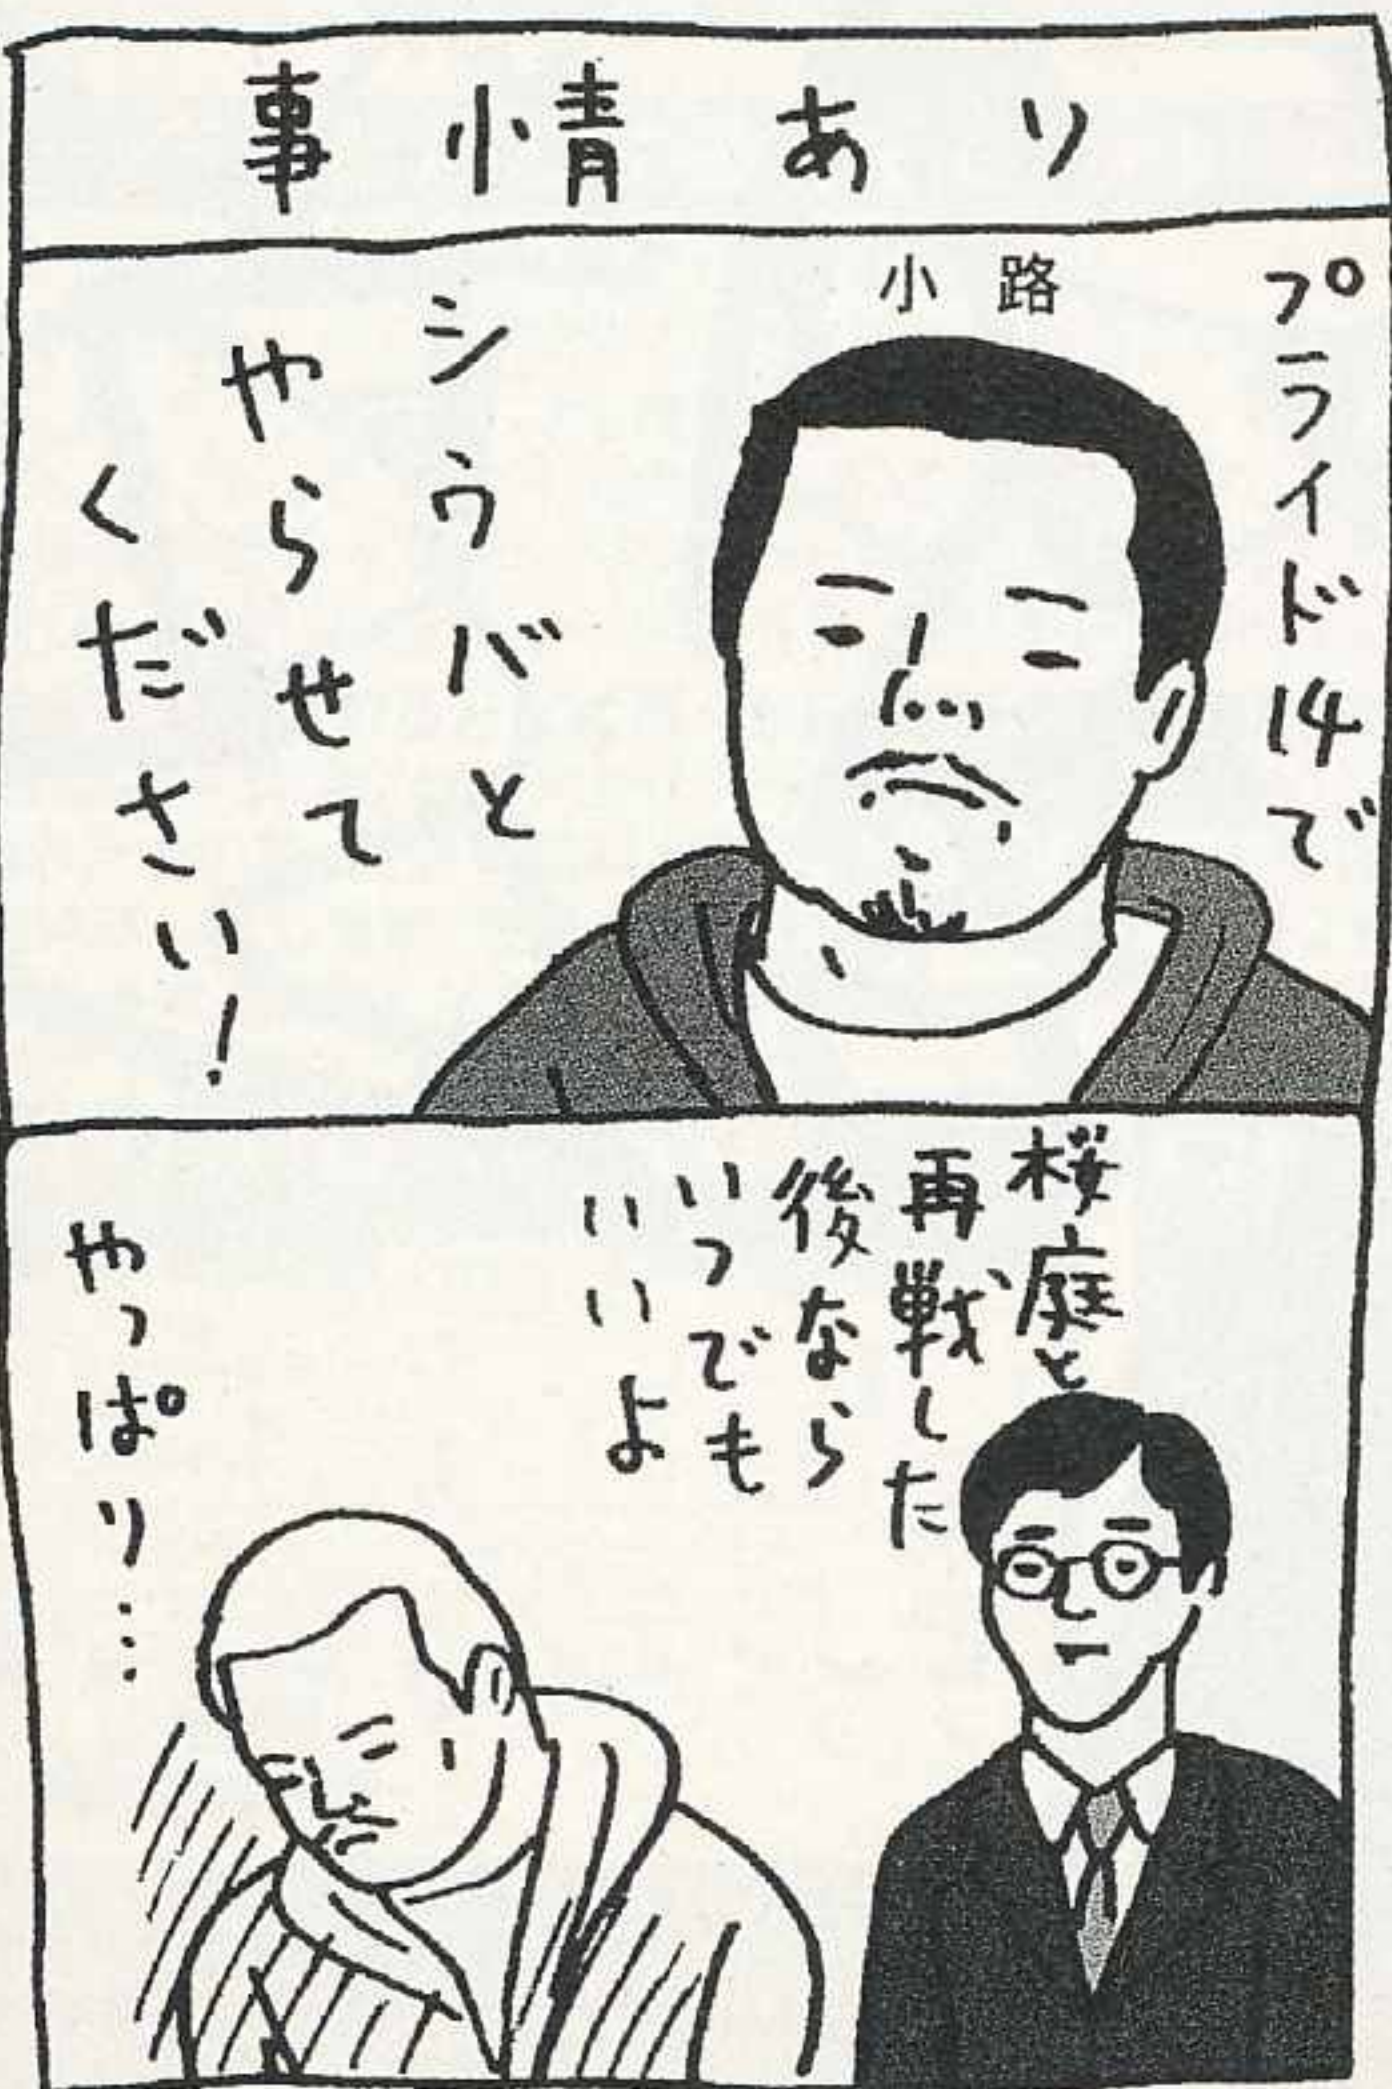 事情あり
小路
プライド14で
シウバと
やらせて
ください!
桜庭と
再戦した
後なら
いつでも
いいよ
やっぱり……